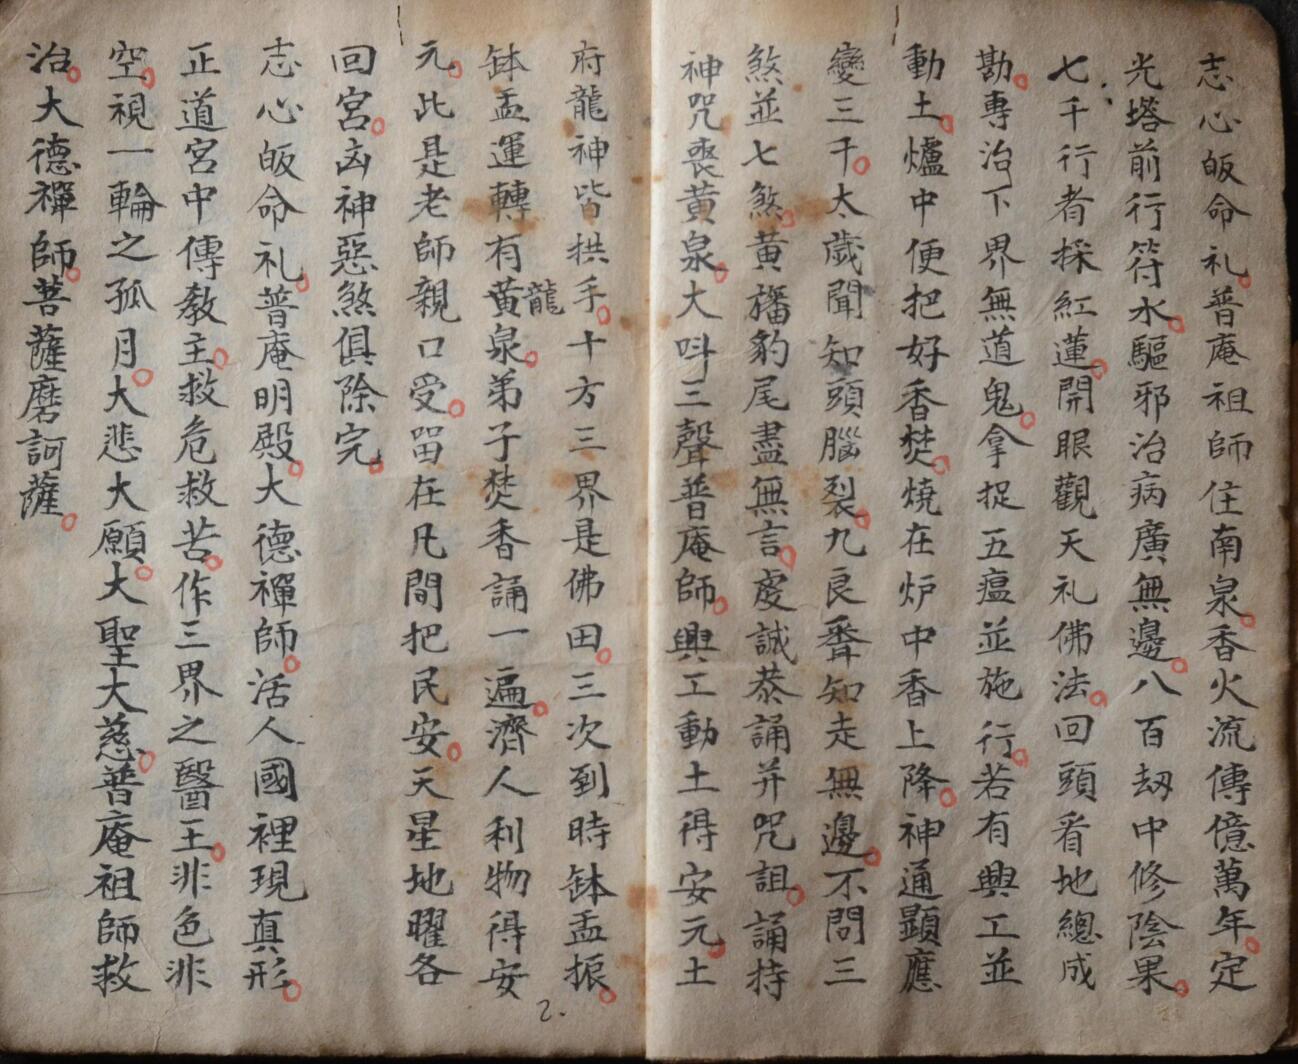 志心皈命礼普庵祖師住南泉香火流傳億萬年定
光塔前行符水驅邪治病廣無邊八百劫中修陰果
七千行者採紅蓮開眼觀天礼佛法回頭看地總成
勘專治下界無道鬼拿捉五瘟並施行若有興工並
動土爐中便把好香焚燒在炉中香上降神通顯應
變三千太歲聞知頭腦裂九良聞知走無邊不問三
煞並七煞黄旛豹尾盡無言虔誠恭誦并咒詛誦持
神咒喪黄泉大呌三聲普庵師興工動土得安元土
府龍神皆拱手十方三界是佛田三次到時鉢盂振
鉢盂運轉有黄龍泉弟子焚香誦一遍濟人利物得安
元此是老師親口受畄在凡間把民安天星地曜各
回宮凶神惡煞俱除完
志心皈命礼普庵明殿大德禪師活人國裡現真形
正道宮中傳教主救危救苦作三界之醫王非色非
空視一輪之孤月大悲大願大聖大慈普庵祖師救
治大德禪師菩薩磨訶薩
2.